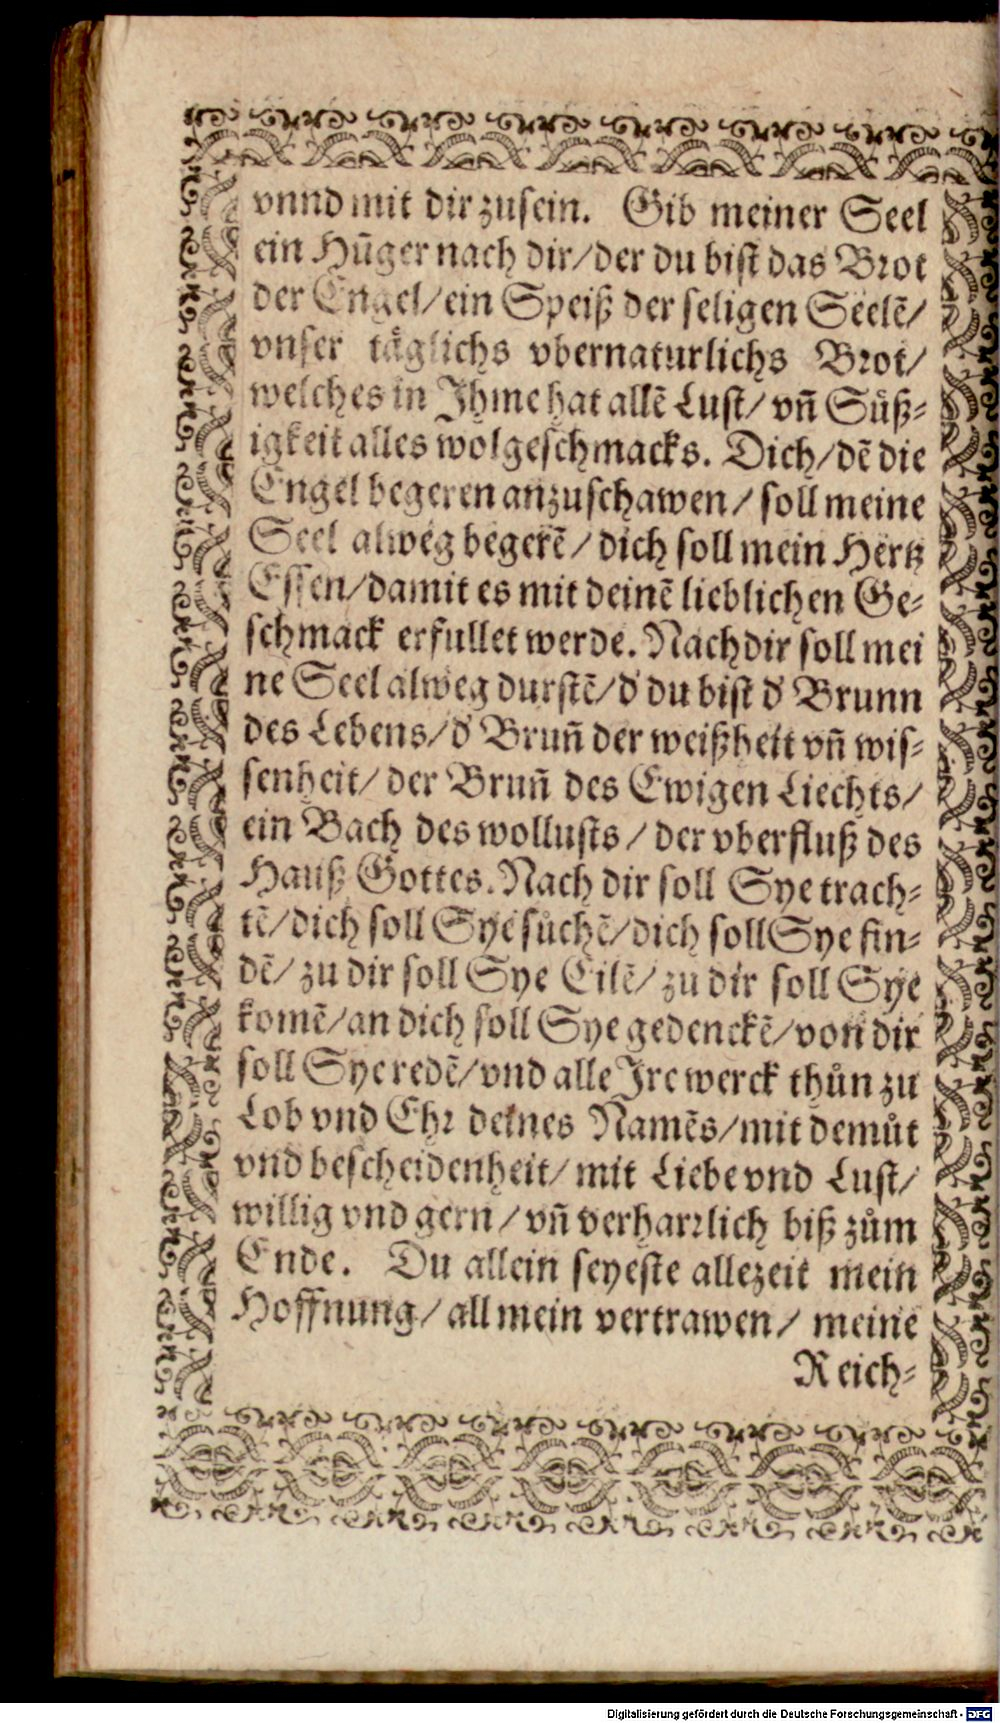 vnnd mit dir zusein. Gib meiner Seel
ein Hūger nach dir/der du bist das Brot
der Engel/ein Speiß der seligen Seelē/
vnser täglichs vbernaturlichs Brot/
welches in Jhme hat allē Lust/ vn̄ Süß-
igkeit alles wolgeschmacks. Dich/dē die
Engel begeren anzuschawen/ soll meine
Seel alweg begerē/ dich soll mein Hertz
Essen/damit es mit deinē lieblichen Ge-
schmack erfullet werde. Nach dir soll mei
ne Seel alweg durstē/d' du bist d' Brunn
des Lebens/d' Brun̄ der weißheit vn̄ wis-
senheit/ der Brun̄ des Ewigen Liechts/
ein Bach des wollusts/ der vberfluß des
Hauß Gottes. Nach dir soll Sye trach-
tē/dich soll Sye sůchē/dich soll Sye fin-
dē/ zu dir soll Sye Eilē/ zu dir soll Sye
komē/an dich soll Sye gedenckē/von dir
soll Sye redē/vnd alle Jre werck thůn zu
Lob vnd Ehr deines Namēs/mit demůt
vnd bescheidenheit/ mit Liebe vnd Lust/
willig vnd gern/ vn̄ verharrlich biß zům
Ende. Du allein seyeste allezeit mein
Hoffnung/ all mein vertrawen/ meine
Reich-
Digitalisierung gefördert durch die Deutsche Forschungsgemeinschaft - DFG